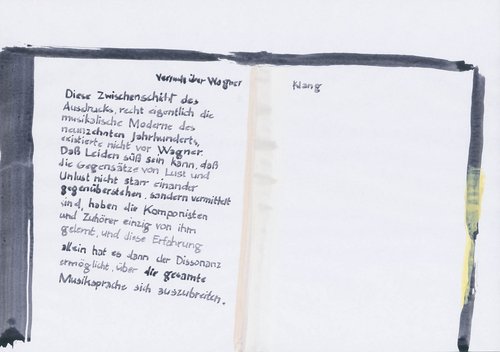 Versuch über Wagner
Klang
Diese Zwischenschiht des
Ausdrucks, recht eigentlich die
musikalische Moderne des
neunzehnten Jahrhunderts,
existierte nicht vor Wagner.
Daß Leiden süß sein kann, daß
die Gegensätze von Lust und
Unlust nicht starr einander
gegenüberstehen, sondern vermittelt
sind, haben die Komponisten
und Zuhörer einzig von ihm
gelernt, und diese Erfahrung
allein hat es dann der Dissonanz
ermöglicht, über die gesamte
Musiksprache sich auszubreiten.